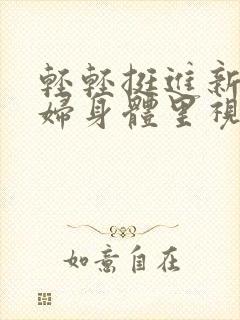 輕輕挺進新
婦身體里視
如意自在